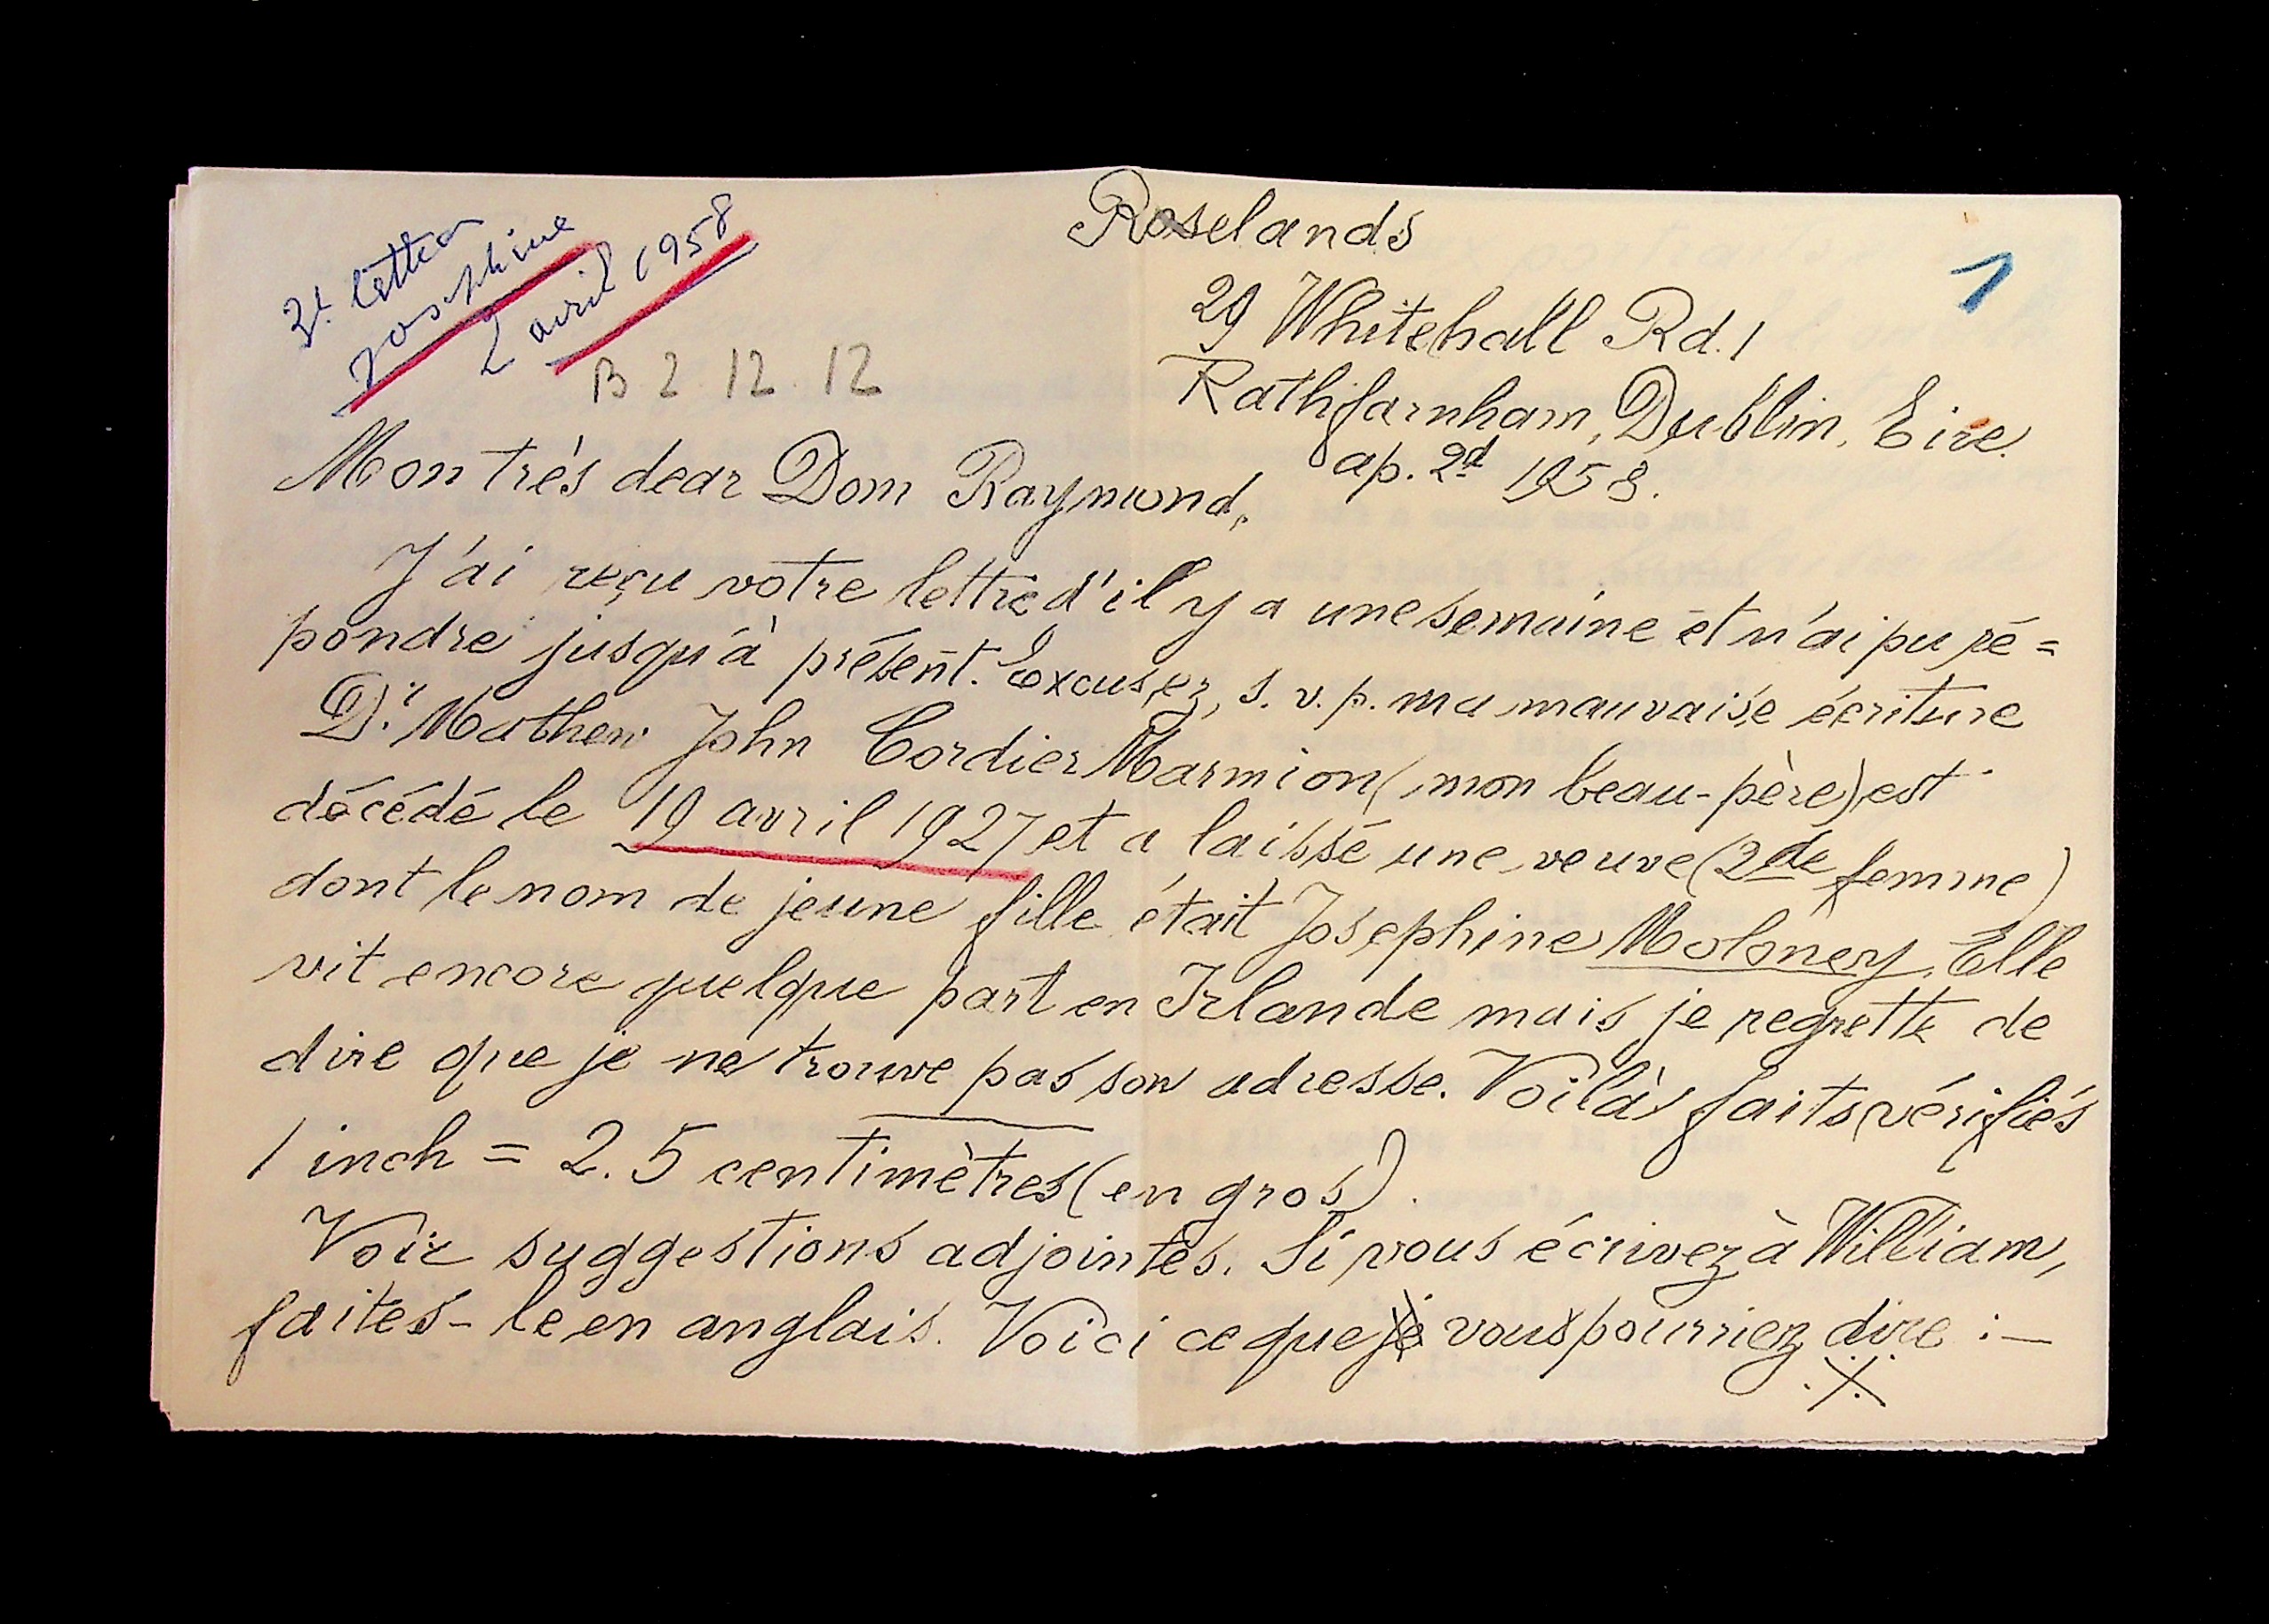 3e lettre
Josephine
2 avril 1958
B 2 12 12
1
Roselands
29 Whitehall Rd.
Rathfarnham, Dublin, Eire.
ap. 2d 1958.
Mon très dear Dom Raymond,
J'ai reçu votre lettre d'il y a une semaine et n'ai pu ré=
pondre jusqu'à présent. Excusez, s. v. p. ma mauvaise écriture
Dr. Mathew John Cordier Marmion (mon beau-père) est
décédé le 19 avril 1927 et a laissé une veuve (2de femme)
dont le nom de jeune fille était Josephine Moloney. Elle
vit encore quelque part en Irlande mais je regrette de
dire que je ne trouve pas son adresse. Voilà faits vérifiés
1 inch = 2.5 centimètres (en gros).
Voir suggestions adjointes. Si vous écrivez à William,
faites-le en anglais. Voici ce que je vous pourriez dire :—